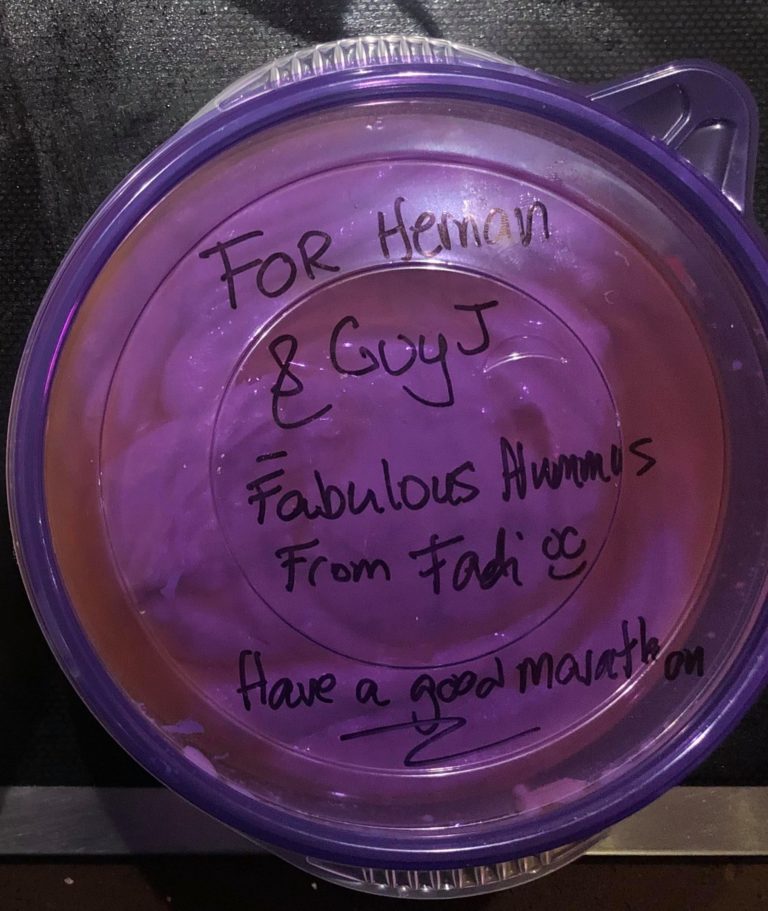 FOR Hernan
& Guy J
Fabulous Hummus
From Fadi
Have a good marathon